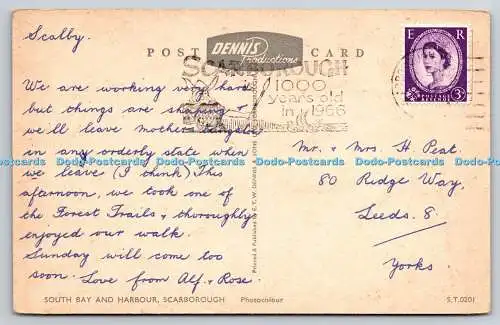 Scalby.
POST CARD
DENNIS
Productions
E R
SCARBOROUGH
1000
years old
in 1966
POSTAGE
REVENUE
3D
We are working very hard
but things are shaping &
we'll leave mother
in an orderly state when
we leave (I think) This
afternoon, we took one of
the Forest Trails & thoroughly
enjoyed our walk.
Sunday will come too
soon. Love from Alf & Rose.
Mr. & Mrs H Peat.
80 Ridge Way,
Leeds. 8.
Yorks.
Dodo-Postcards Dodo-Postcards Dodo-Postcards Dodo-Postcards Dodo-Postcards Dodo-Postcards
Printed & Published by E.T.W. Dennis
SOUTH BAY AND HARBOUR, SCARBOROUGH Photocolour
S.T.0201